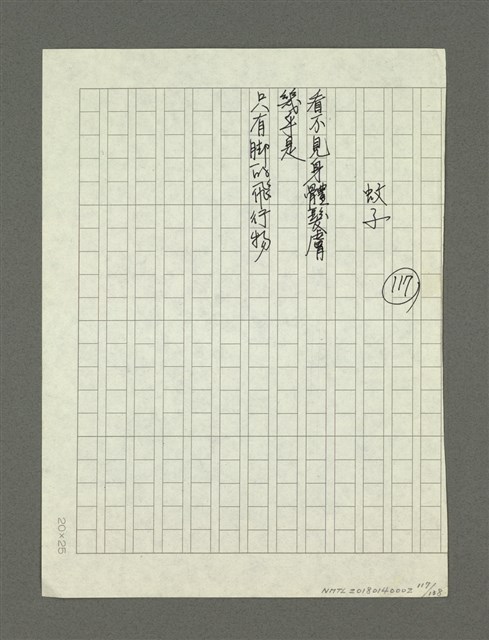 蚊子
117
看不見身體髮膚
幾乎是
只有脚的飛行物
20×25
NMTL20180140002 117/188